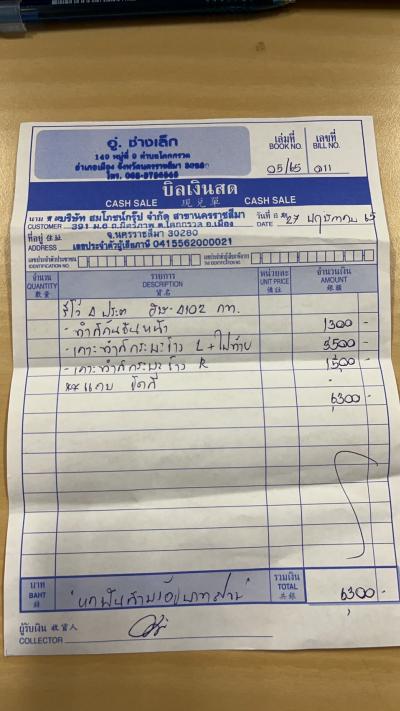 อู่ ช่างเล็ก
149 หมู่ที่ 9 ตำบลโคกกรวด
อำเภอเมือง จังหวัดนครราชสีมา 30280
โทร.
เล่มที่ เลขที่
BOOK NO. BILL NO.
05/65 011
บิลเงินสด
CASH SALE 現兌單 CASH SALE
นาม บริษัท สมโภชน์กรุ๊ป จำกัด สาขานครราชสีมา
วันที่ 27 พฤษภาคม 65
CUSTOMER 391 ม.6 ถ.มิตรภาพ ต.โคกกรวด อ.เมือง
DATE
ที่อยู่ จ.นครราชสีมา 30280
ADDRESS เลขประจำตัวผู้เสียภาษี 0415562000021
IDENTIFICATION NO.
จำนวน รายการ หน่วยละ จำนวนเงิน
QUANTITY DESCRIPTION UNIT PRICE AMOUNT
數量 貨名 備註 銀額
รีโว่ 4 ประตู 4102 กท.
- ทำสีกันชนหน้า 1300 -
- เคาะทำสีกระบะข้าง L + ไฟท้าย 3500 -
- เคาะทำสีกระบะข้าง R 1500 -
** แถม ขัดสี -
6300 -
บาท รวมเงิน
BAHT TOTAL
銖 共銀
"หกพันสามร้อยบาทถ้วน" 6300 -
ผู้รับเงิน 收貨人
COLLECTOR